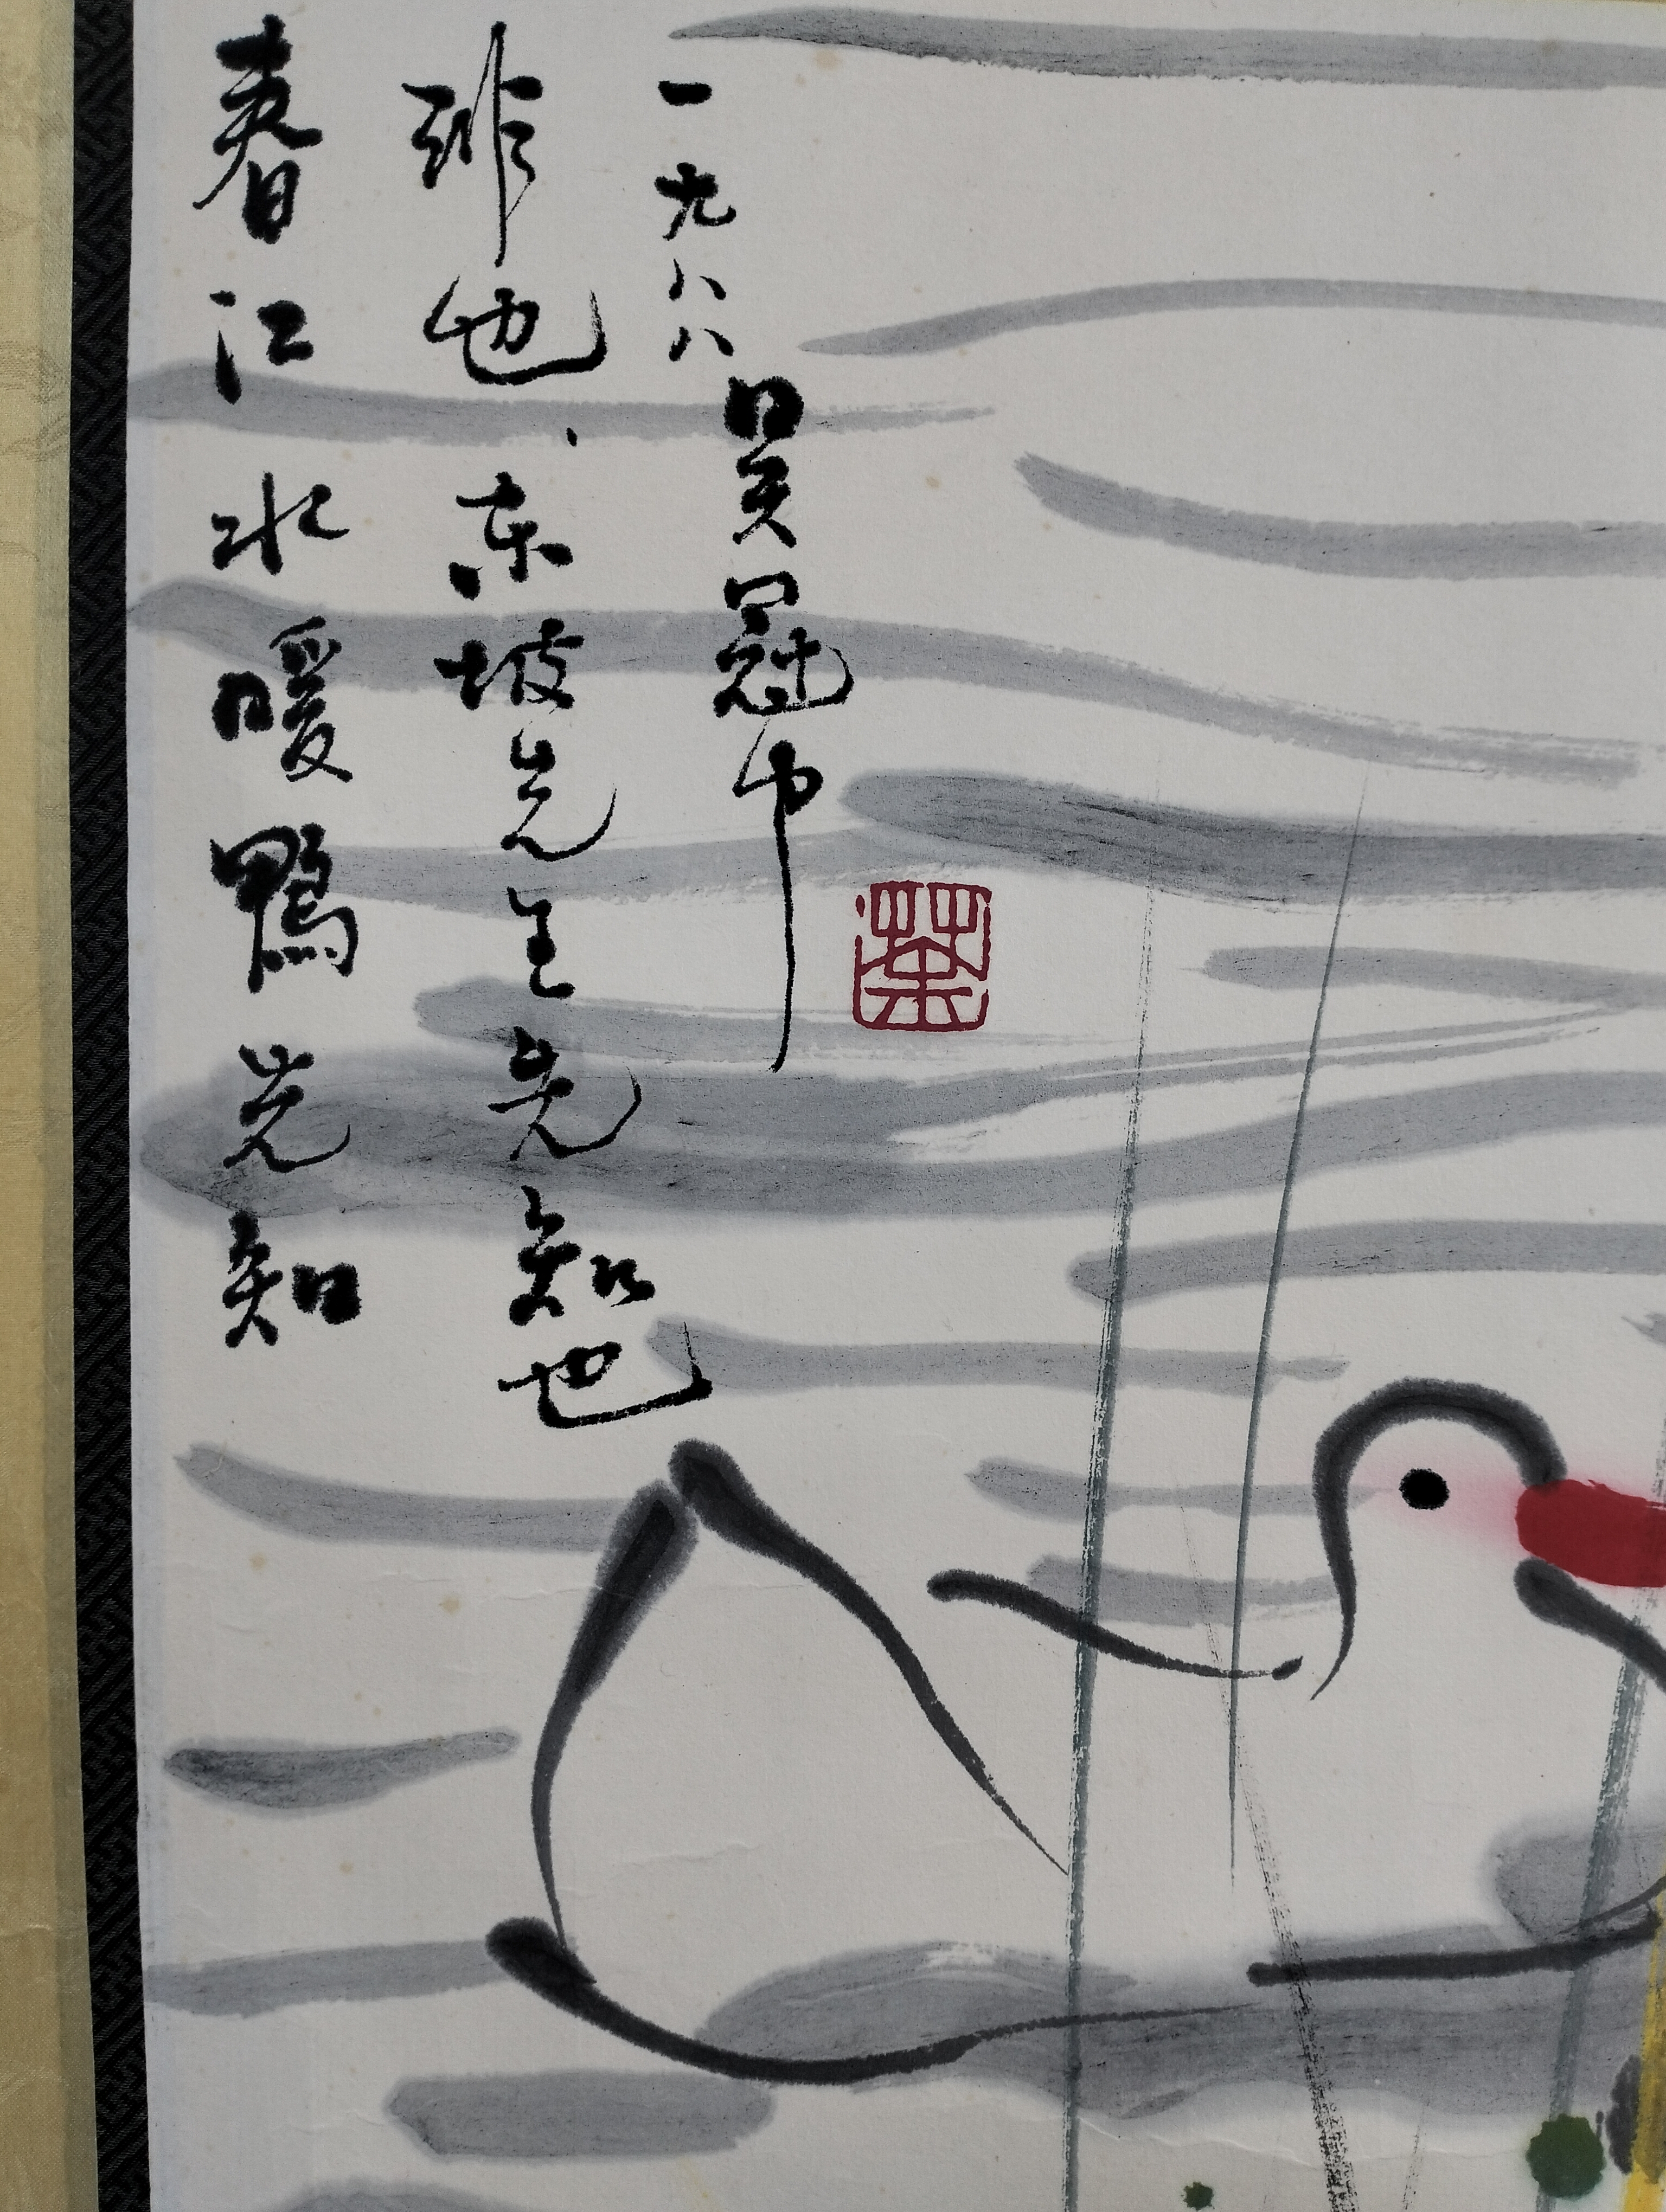 春江水暖鴨先知
非也、东坡先生先知也
一九八八
吴冠中
荼